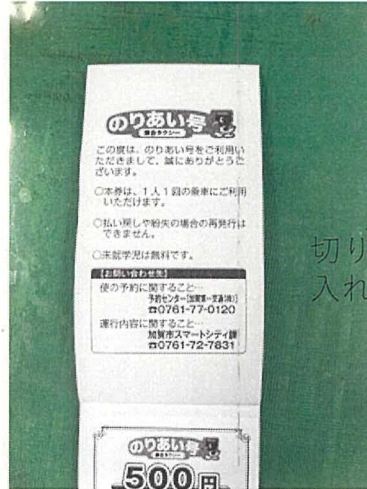 のりあい号
乗合タクシー
この度は、のりあい号をご利用い
ただきまして、誠にありがとうご
ざいます。
○本券は、1人1回の乗車にご利用
いただけます。
○払い戻しや紛失の場合の再発行は
できません。
○未就学児は無料です。
【お問い合わせ先】
便の予約に関すること…
予約センター(加賀第一交通(株))
☎0761-77-0120
運行内容に関すること…
加賀市スマートシティ課
☎0761-72-7831
切り
入れ
のりあい号
乗合タクシー
500円